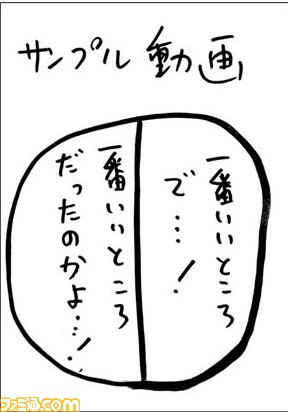 サンプル動画
一番いいところ
で…！
一番いいところ
だったのかよ…！
ファミ通com